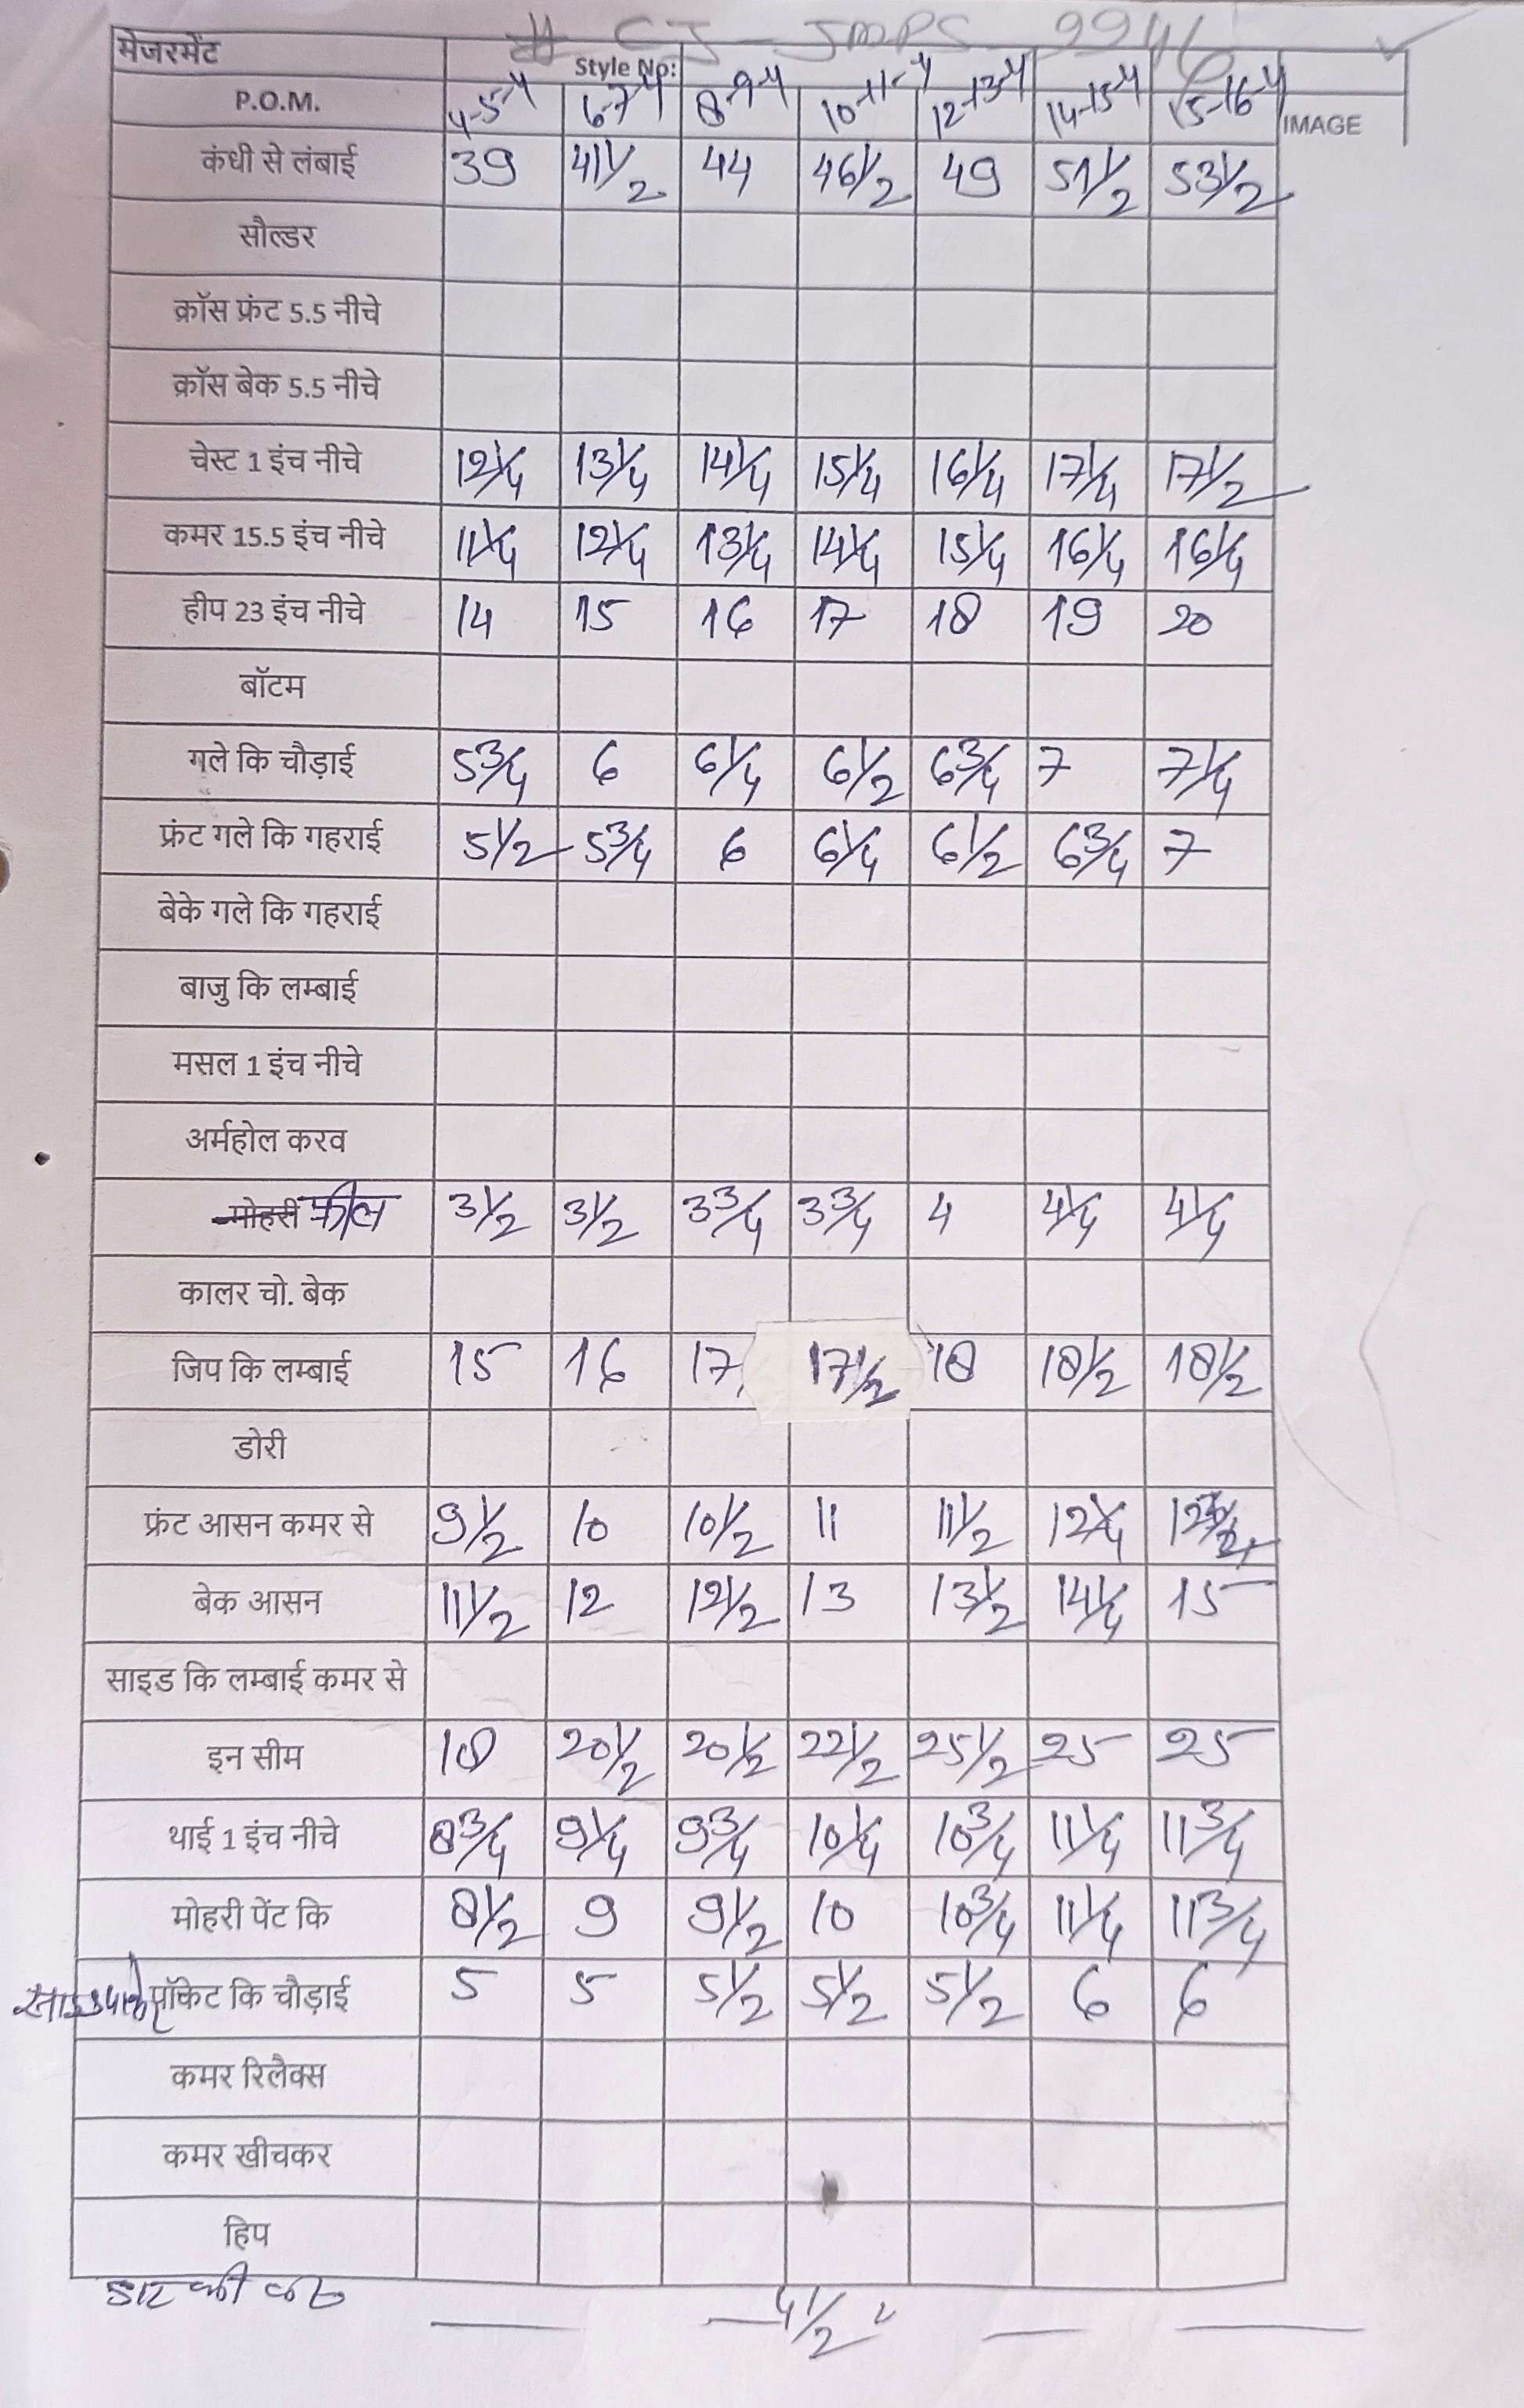 # CJ-JMPS-9946
मेजरमेंट Style No:
P.O.M. 4-5-Y 6-7-Y 8-9-Y 10-11-Y 12-13-Y 14-15-Y 15-16-Y IMAGE
कंधी से लंबाई 39 41 1/2 44 46 1/2 49 51 1/2 53 1/2
सौल्डर
क्रॉस फ्रंट 5.5 नीचे
क्रॉस बेक 5.5 नीचे
चेस्ट 1 इंच नीचे 12 1/4 13 1/4 14 1/4 15 1/4 16 1/4 17 1/4 17 1/2
कमर 15.5 इंच नीचे 11 1/4 12 1/4 13 1/4 14 1/4 15 1/4 16 1/4 16 1/4
हीप 23 इंच नीचे 14 15 16 17 18 19 20
बॉटम
गले कि चौड़ाई 5 3/4 6 6 1/4 6 1/2 6 3/4 7 7 1/4
फ्रंट गले कि गहराई 5 1/2 5 3/4 6 6 1/4 6 1/2 6 3/4 7
बेके गले कि गहराई
बाजु कि लम्बाई
मसल 1 इंच नीचे
अर्महोल करव
मोहरी फ्रील 3 1/2 3 1/2 3 3/4 3 3/4 4 4 1/4 4 1/4
कालर चो. बेक
जिप कि लम्बाई 15 16 17 17 1/2 18 18 1/2 18 1/2
डोरी
फ्रंट आसन कमर से 9 1/2 10 10 1/2 11 11 1/2 12 1/4
बेक आसन 11 1/2 12 12 1/2 13 13 1/2 14 1/4 15
साइड कि लम्बाई कमर से
इन सीम 18 20 1/2 20 1/2 22 1/2 25 1/2 25 25
थाई 1 इंच नीचे 8 3/4 9 1/4 9 3/4 10 1/4 10 3/4 11 1/4 11 3/4
मोहरी पेंट कि 8 1/2 9 9 1/2 10 10 3/4 11 1/4 11 3/4
पॉकेट कि चौड़ाई 5 5 5 1/2 5 1/2 5 1/2 6 6
कमर रिलैक्स
कमर खीचकर
हिप
4 1/2"